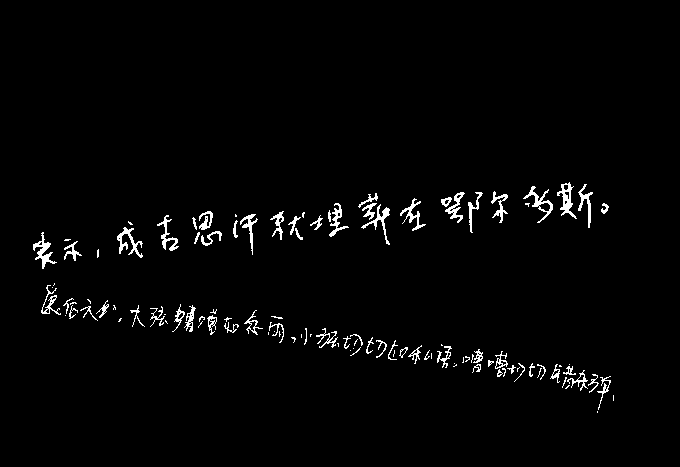 表示，成吉思汗就埋葬在鄂尔多斯。
大弦嘈嘈如急雨，小弦切切如私语，嘈嘈切切错杂弹，